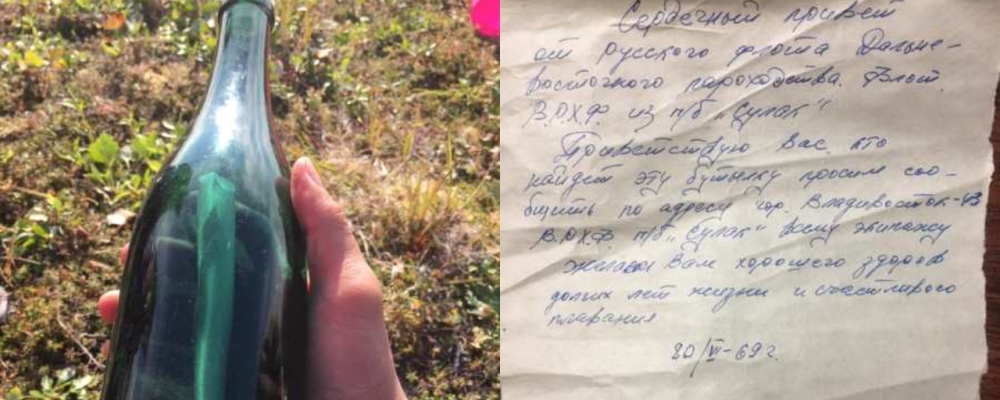 Сердечный привет
от русского флота Дальне-
восточного пароходства. Флот
В.О.Х.Ф. из п/б "Сулак"
Приветствую Вас, кто
найдет эту бутылку просим соо-
бщить по адресу гор. Владивосток-43
В.О.Х.Ф. п/б "Сулак" всему экипажу
желаем Вам хорошего здоров
долгих лет жизни и счастливого
плавания
20/VI-69 г.